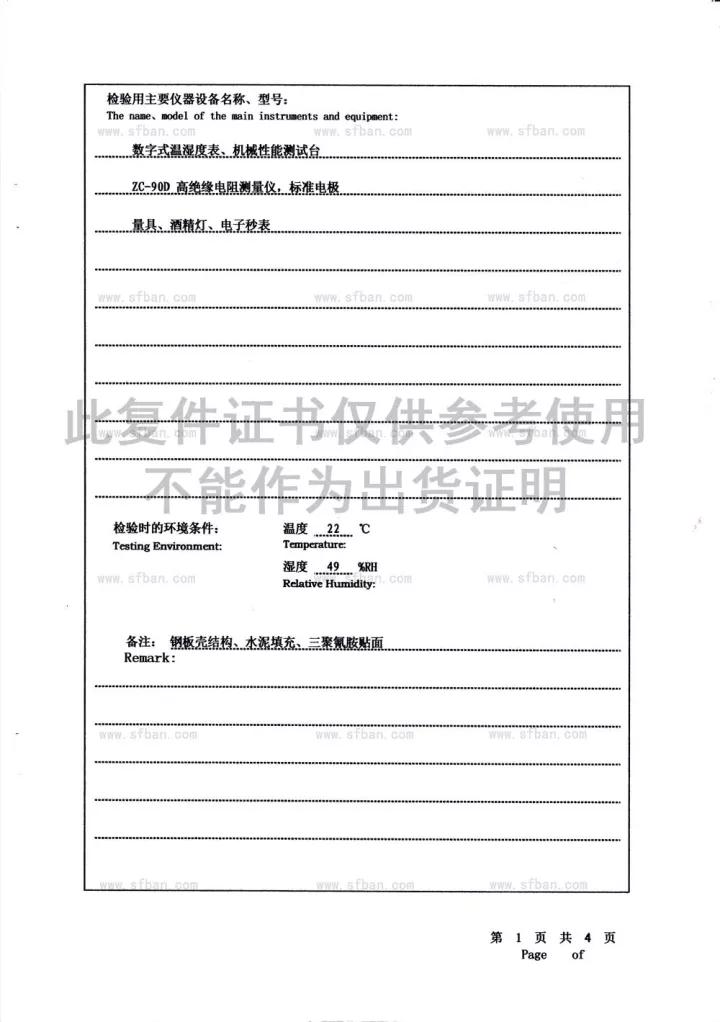 检验用主要仪器设备名称、型号:
The name、model of the main instruments and equipment:
www.sfban.com www.sfban.com www.sfban.com
数字式温湿度表、机械性能测试台
ZC-90D 高绝缘电阻测量仪，标准电极
量具、酒精灯、电子秒表
www.sfban.com www.sfban.com www.sfban.com
此复件证书仅供参考使用
www.sfban.com www.sfban.com www.sfban.com
不能作为出货证明
检验时的环境条件: 温度 22 ℃
Testing Environment: Temperature:
湿度 49 %RH
www.sfban.com Relative Humidity: www.sfban.com www.sfban.com
备注: 钢板壳结构、水泥填充、三聚氰胺贴面
Remark:
www.sfban.com www.sfban.com www.sfban.com
www.sfban.com www.sfban.com www.sfban.com
第 1 页 共 4 页
Page of